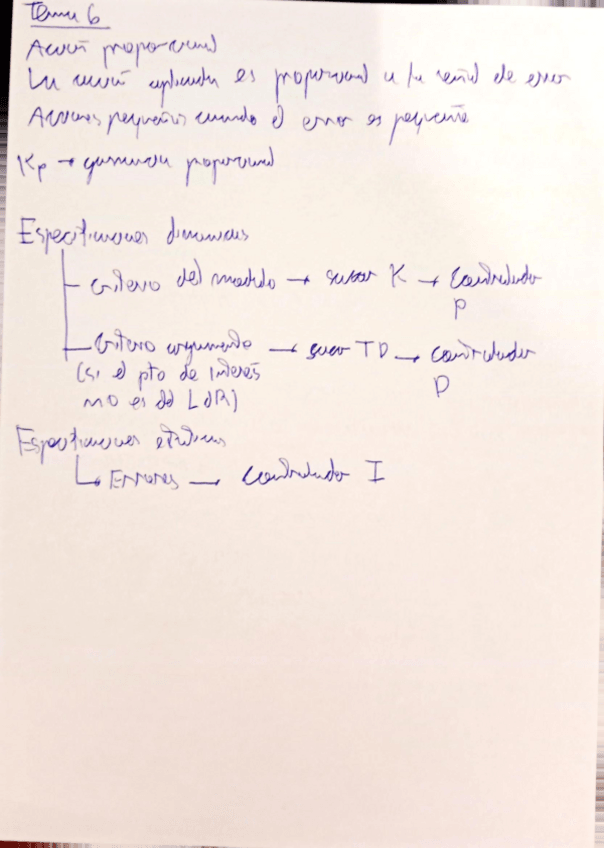 Tema 6
Acción proporcional
La acción aplicada es proporcional a la señal de error
Acciones pequeñas cuando el error es pequeño
Kp → ganancia proporcional
Especificaciones dinámicas
Criterio del modulo → sacar K → Controlador
P
Criterio argumento → sacar TD → controlador
(si el pto de interés
D
no es del LdR)
Especificaciones estáticas
Errores → Controlador I